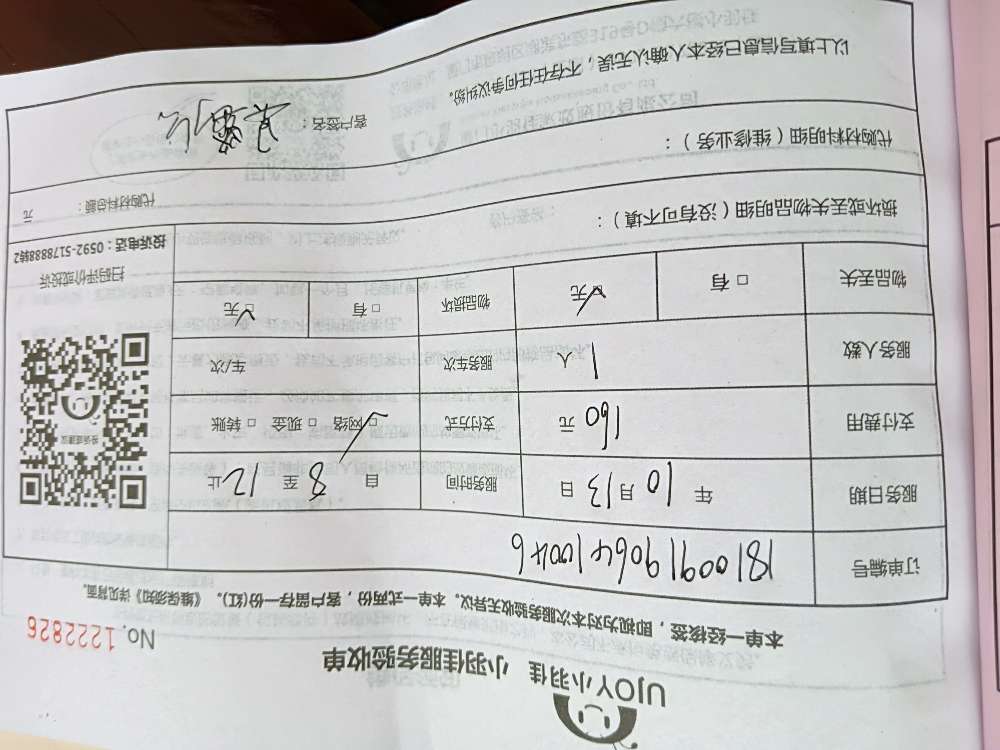 UJOY小羽佳 小羽佳服务验收单
No. 1222826
本单一经核签,即视为对本次服务验收无异议。本单一式两份,客户留存一份(红)。《维保须知》详见背面。
订单编号 1810091906410046
服务日期 年 10 月 13 日 服务时间 自 8 至 12 止
支付费用 160 元 支付方式 ☑ 网络 □ 现金 □ 转账
服务人数 1 人 服务车次 车/次
物品丢失 □ 有 ☑ 无 物品损坏 □ 有 ☑ 无
投诉或建议
扫码评价或投诉
投诉电话:0592-5178888转2
损坏或丢失物品明细(没有可不填):
代购材料明细(维修业务): 代购材料总额: 元
以上填写信息已经本人确认无误,不存在任何争议纠纷。
客户签名: